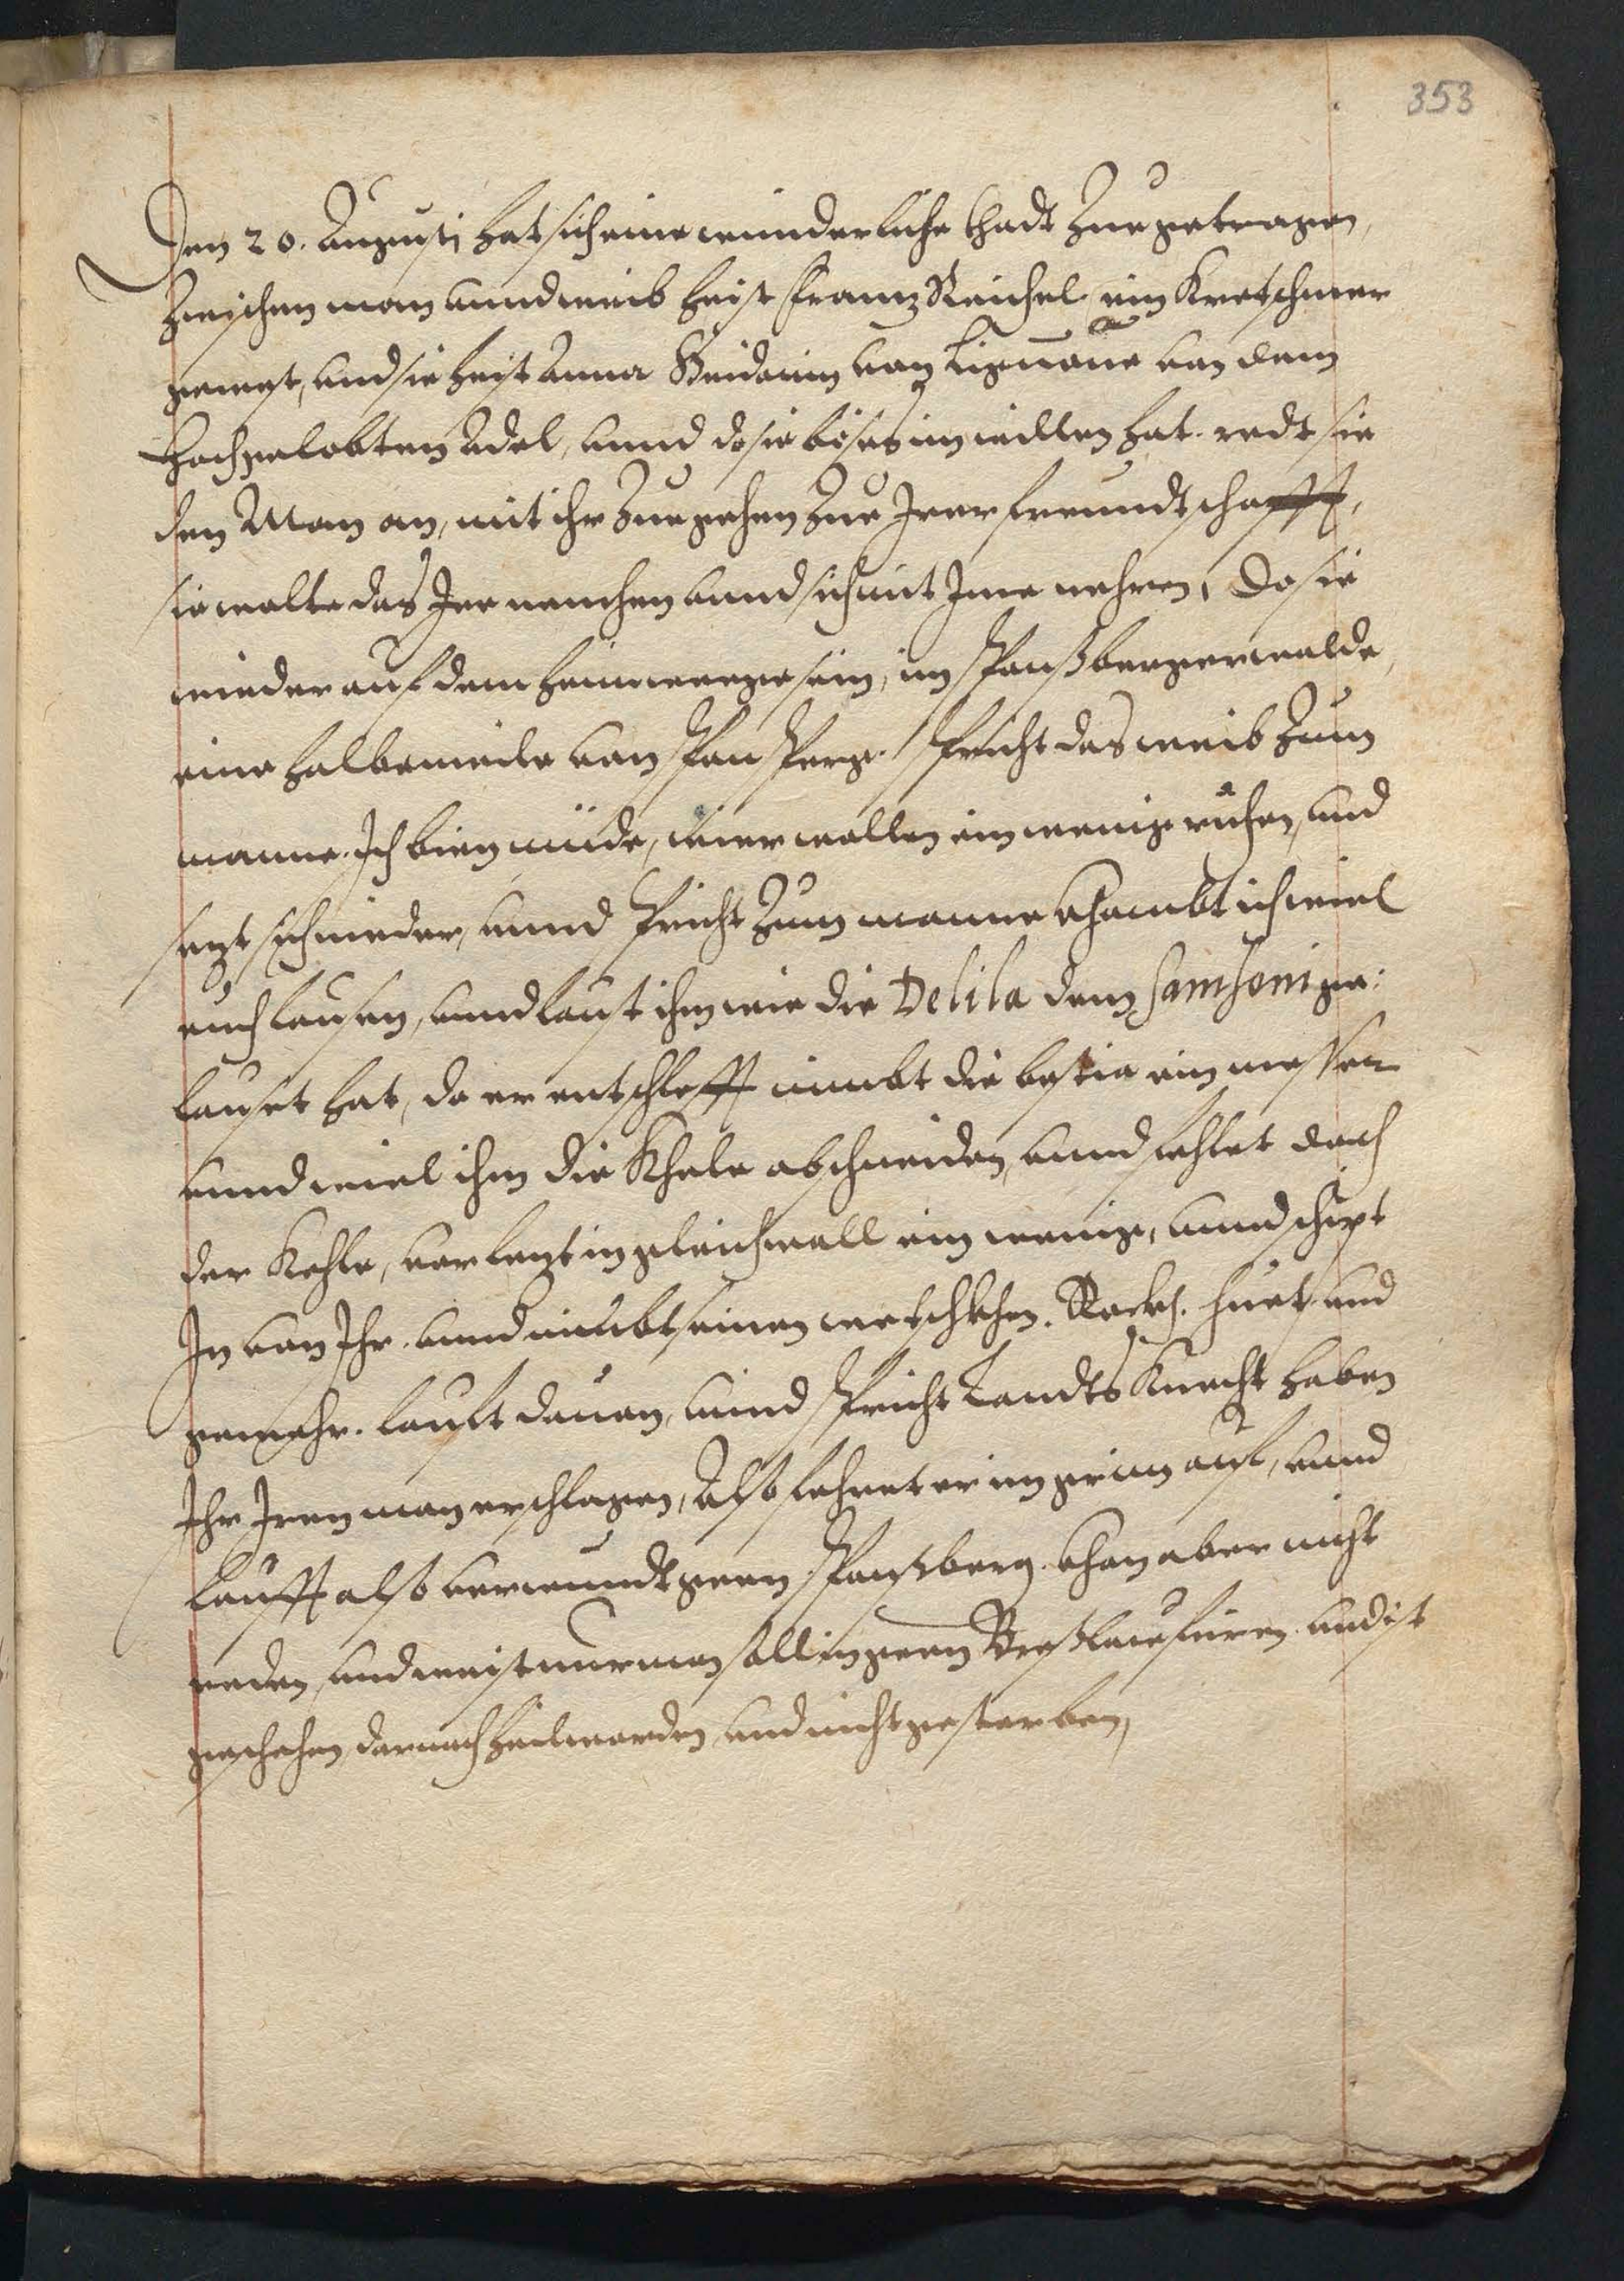 353
Den 20. Augusti hat sich eine wunderliche thadt Zue getragen,
Zwischen man unnd weib heist Frantz Reichel ein Kretschmer
gewest, und sie heist Anna von Lignaue von dem
Hochgelobten Adel, unnd do sie böses im willen hat. redt sie
den Man an, mit ihr Zue gehen Zue Irer freundtschafft,
sie wolte das Ire nemhen unnd sich mit Ime nehren, Do sie
wieder auf dem heimwege sein, im Spansberger walde,
eine halbe meile von Spansperg. spricht das weib Zum
manne. Ich bien müde, wier wollen ein wenig ruhen, und
sezt sich nieder, unnd spricht Zum manne khombt ich wiel
euch lausen, unnd laust ihm wie die Delila dem Samsoni ge:
lauset hat, do er entschlefft nimbt die bestia ein messer
unnd wiel ihm die Khele abschneiden, unnd fehlet doch
der Kehle, verlezt in gleichwoll ein wenig, unnd
In von Ihr. unnd nimbt seinen Rockh. huet und
gewehr. laufft davon, unnd spricht Landts Knecht haben
Ihr Iren man erschlagen, Also fehret er im grim auf, unnd
laufft also verwundt gern Spansberg. khan aber nicht
reden, und weist nur man soll in gern Breslau füren und ist
geschehen, darnach heil worden, und nicht gestorben,